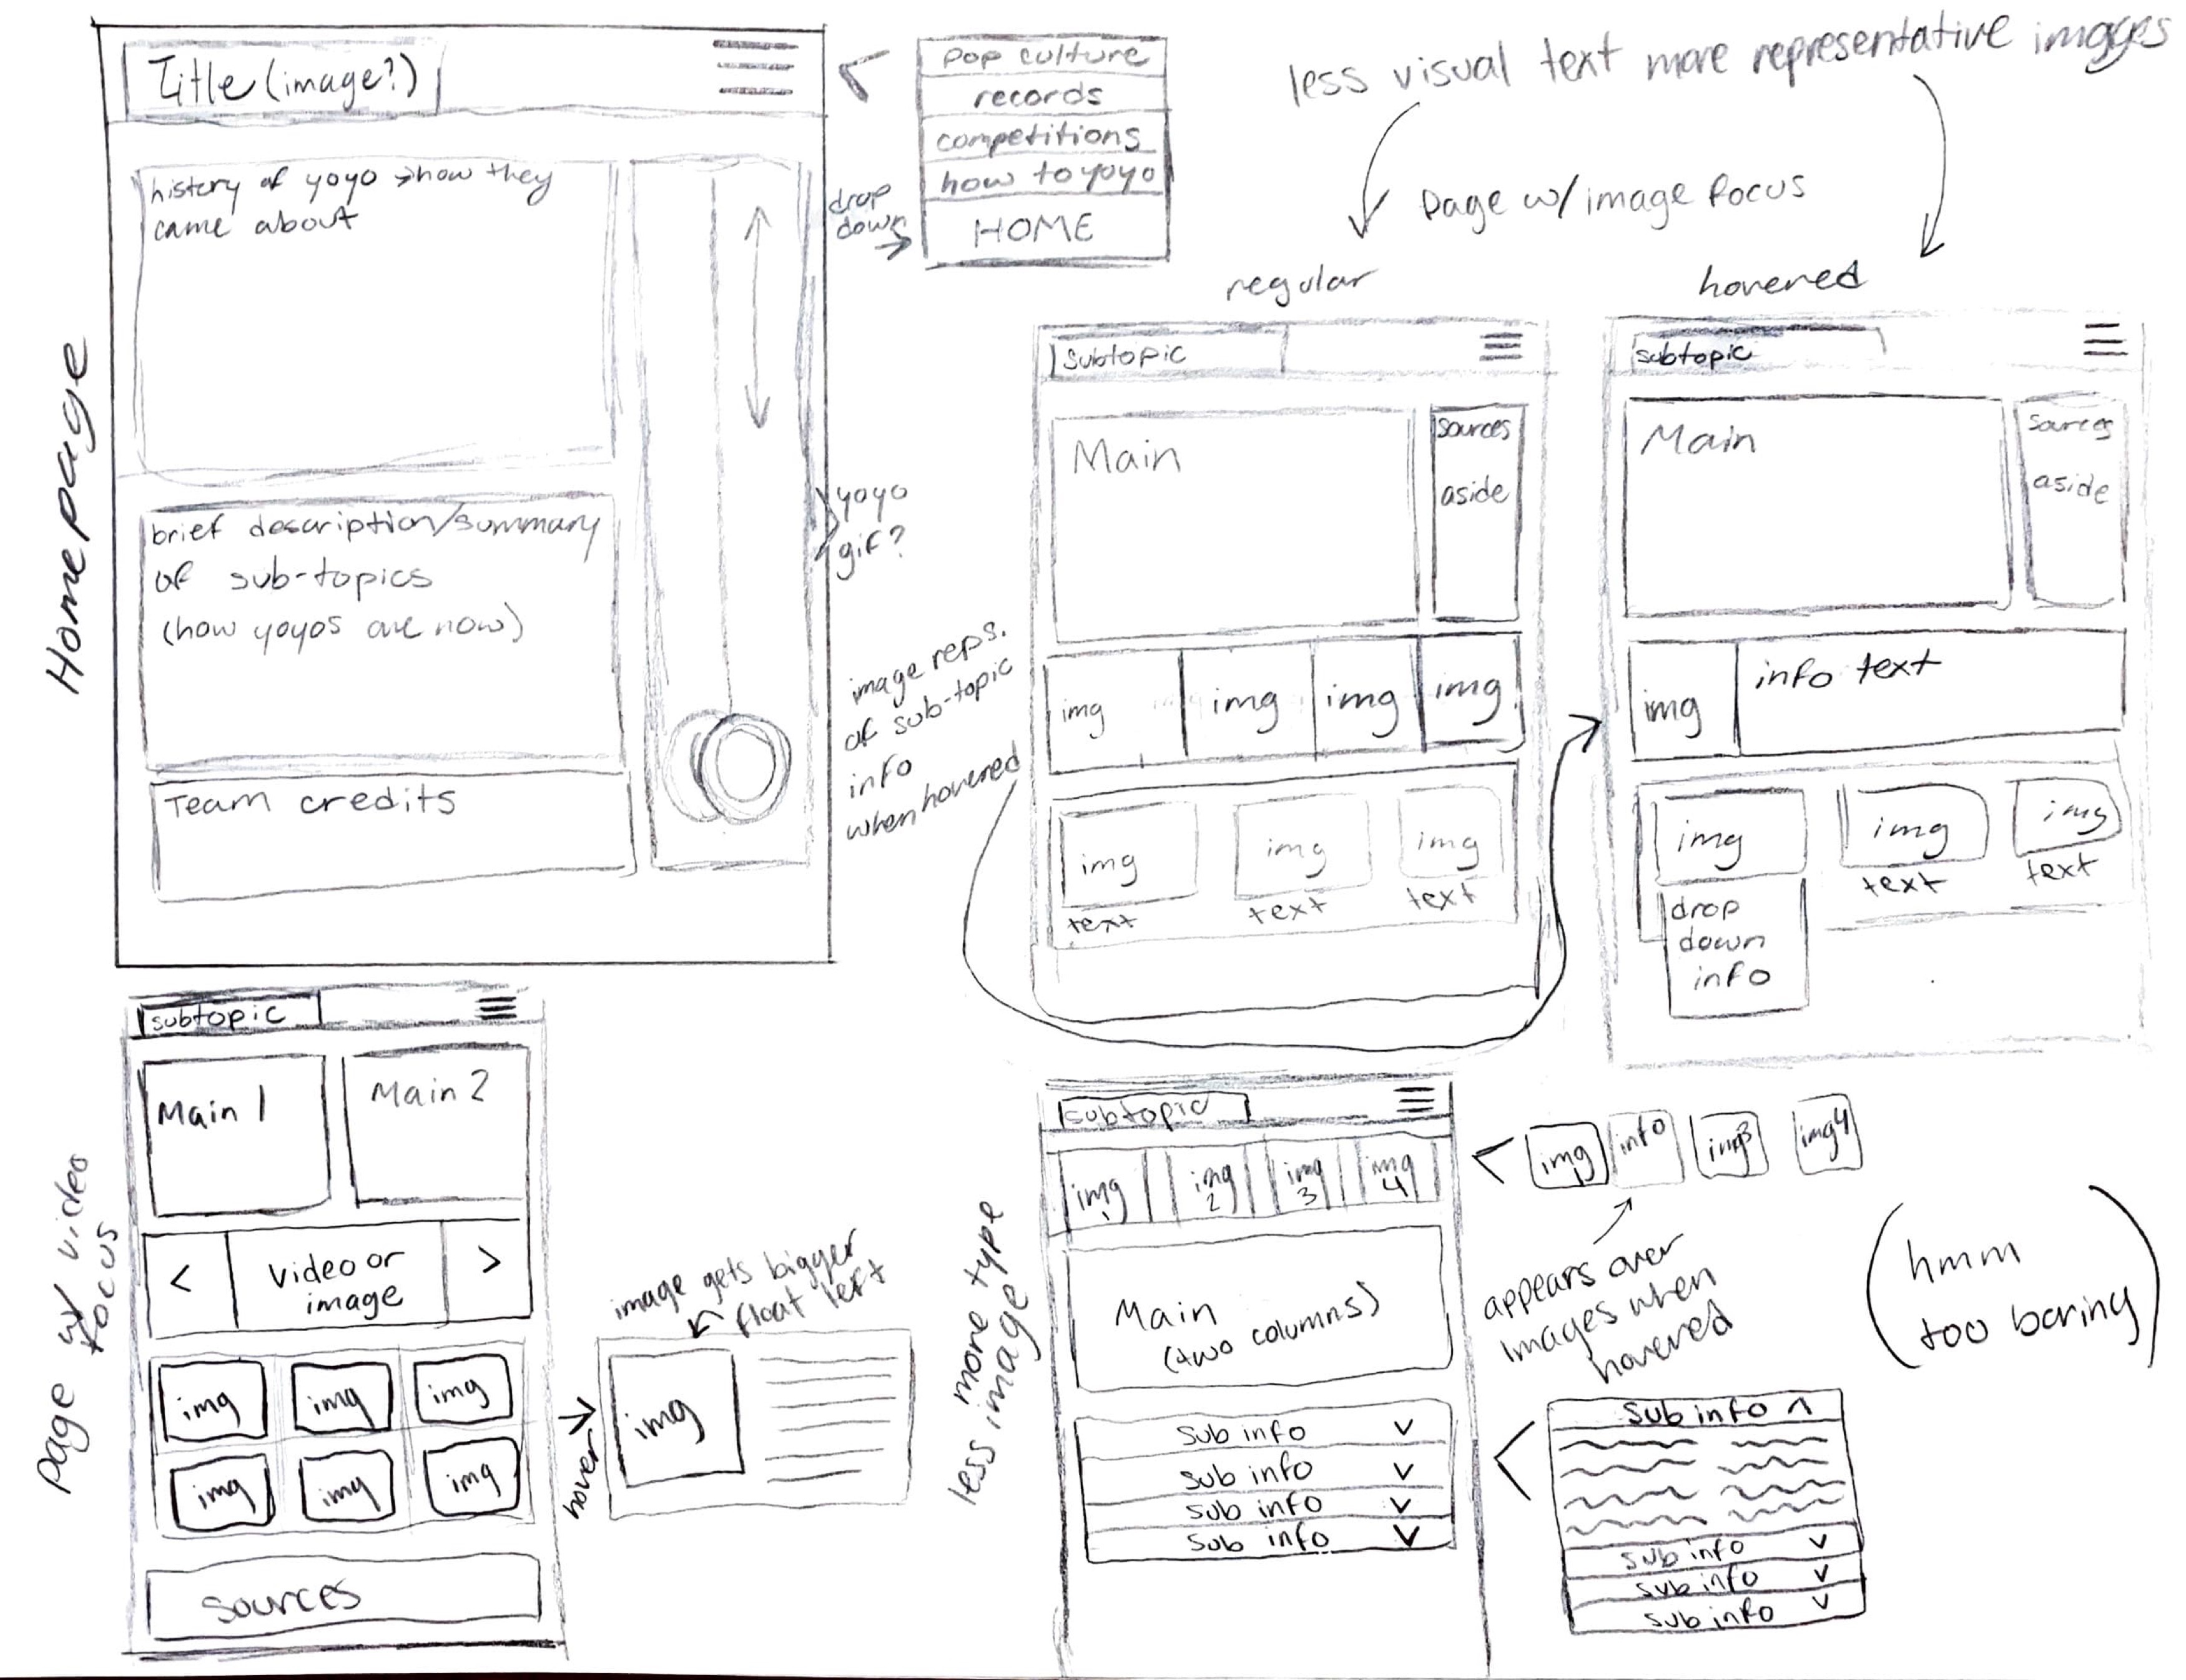 Homepage
Title (image?)
history of yoyo → how they
came about
brief description/summary
of sub-topics
(how yoyos are now)
Team credits
yoyo
gif?
drop
down
pop culture
records
competitions
how to yoyo
HOME
less visual text more representative images
Page w/ image focus
regular
subtopic
Main
sources
aside
img
img
img
img
img
img
img
text
text
text
image reps.
of sub-topic
info
when hovered
hovered
subtopic
Main
sources
aside
img
info text
img
img
img
text
text
drop
down
info
Page w/ video
focus
subtopic
Main 1
Main 2
<
video or
image
>
img
img
img
img
img
img
sources
hover
image gets bigger
float left
img
more type
less image
subtopic
img
1
img
2
img
3
img
4
Main
(two columns)
sub info v
sub info v
sub info v
sub info v
img
1
info
img3
img4
appears over
images when
hovered
(hmm
too boring)
sub info ^
sub info v
sub info v
sub info v